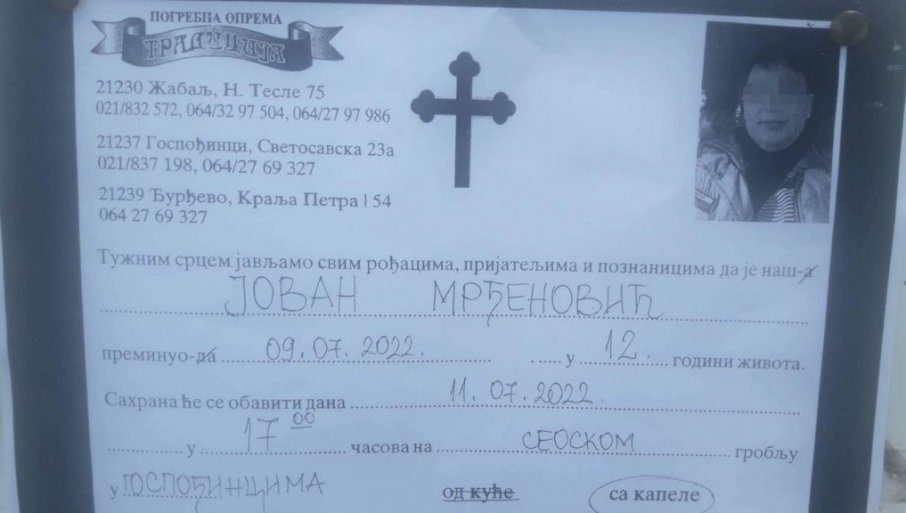 ПОГРЕБНА ОПРЕМА
ТРАДИЦИЈА
21230 Жабаљ, Н. Тесле 75
021/832 572, 064/32 97 504, 064/27 97 986
21237 Госпођинци, Светосавска 23а
021/837 198, 064/27 69 327
21239 Ђурђево, Краља Петра I 54
064 27 69 327
Тужним срцем јављамо свим рођацима, пријатељима и познаницима да је наш-а
ЈОВАН МРЂЕНОВИЋ
преминуо-ла 09.07.2022. у 12. години живота.
Сахрана ће се обавити дана 11.07.2022.
у 17 00 часова на СЕОСКОМ гробљу
у ГОСПОЂИНЦИМА од куће са капеле